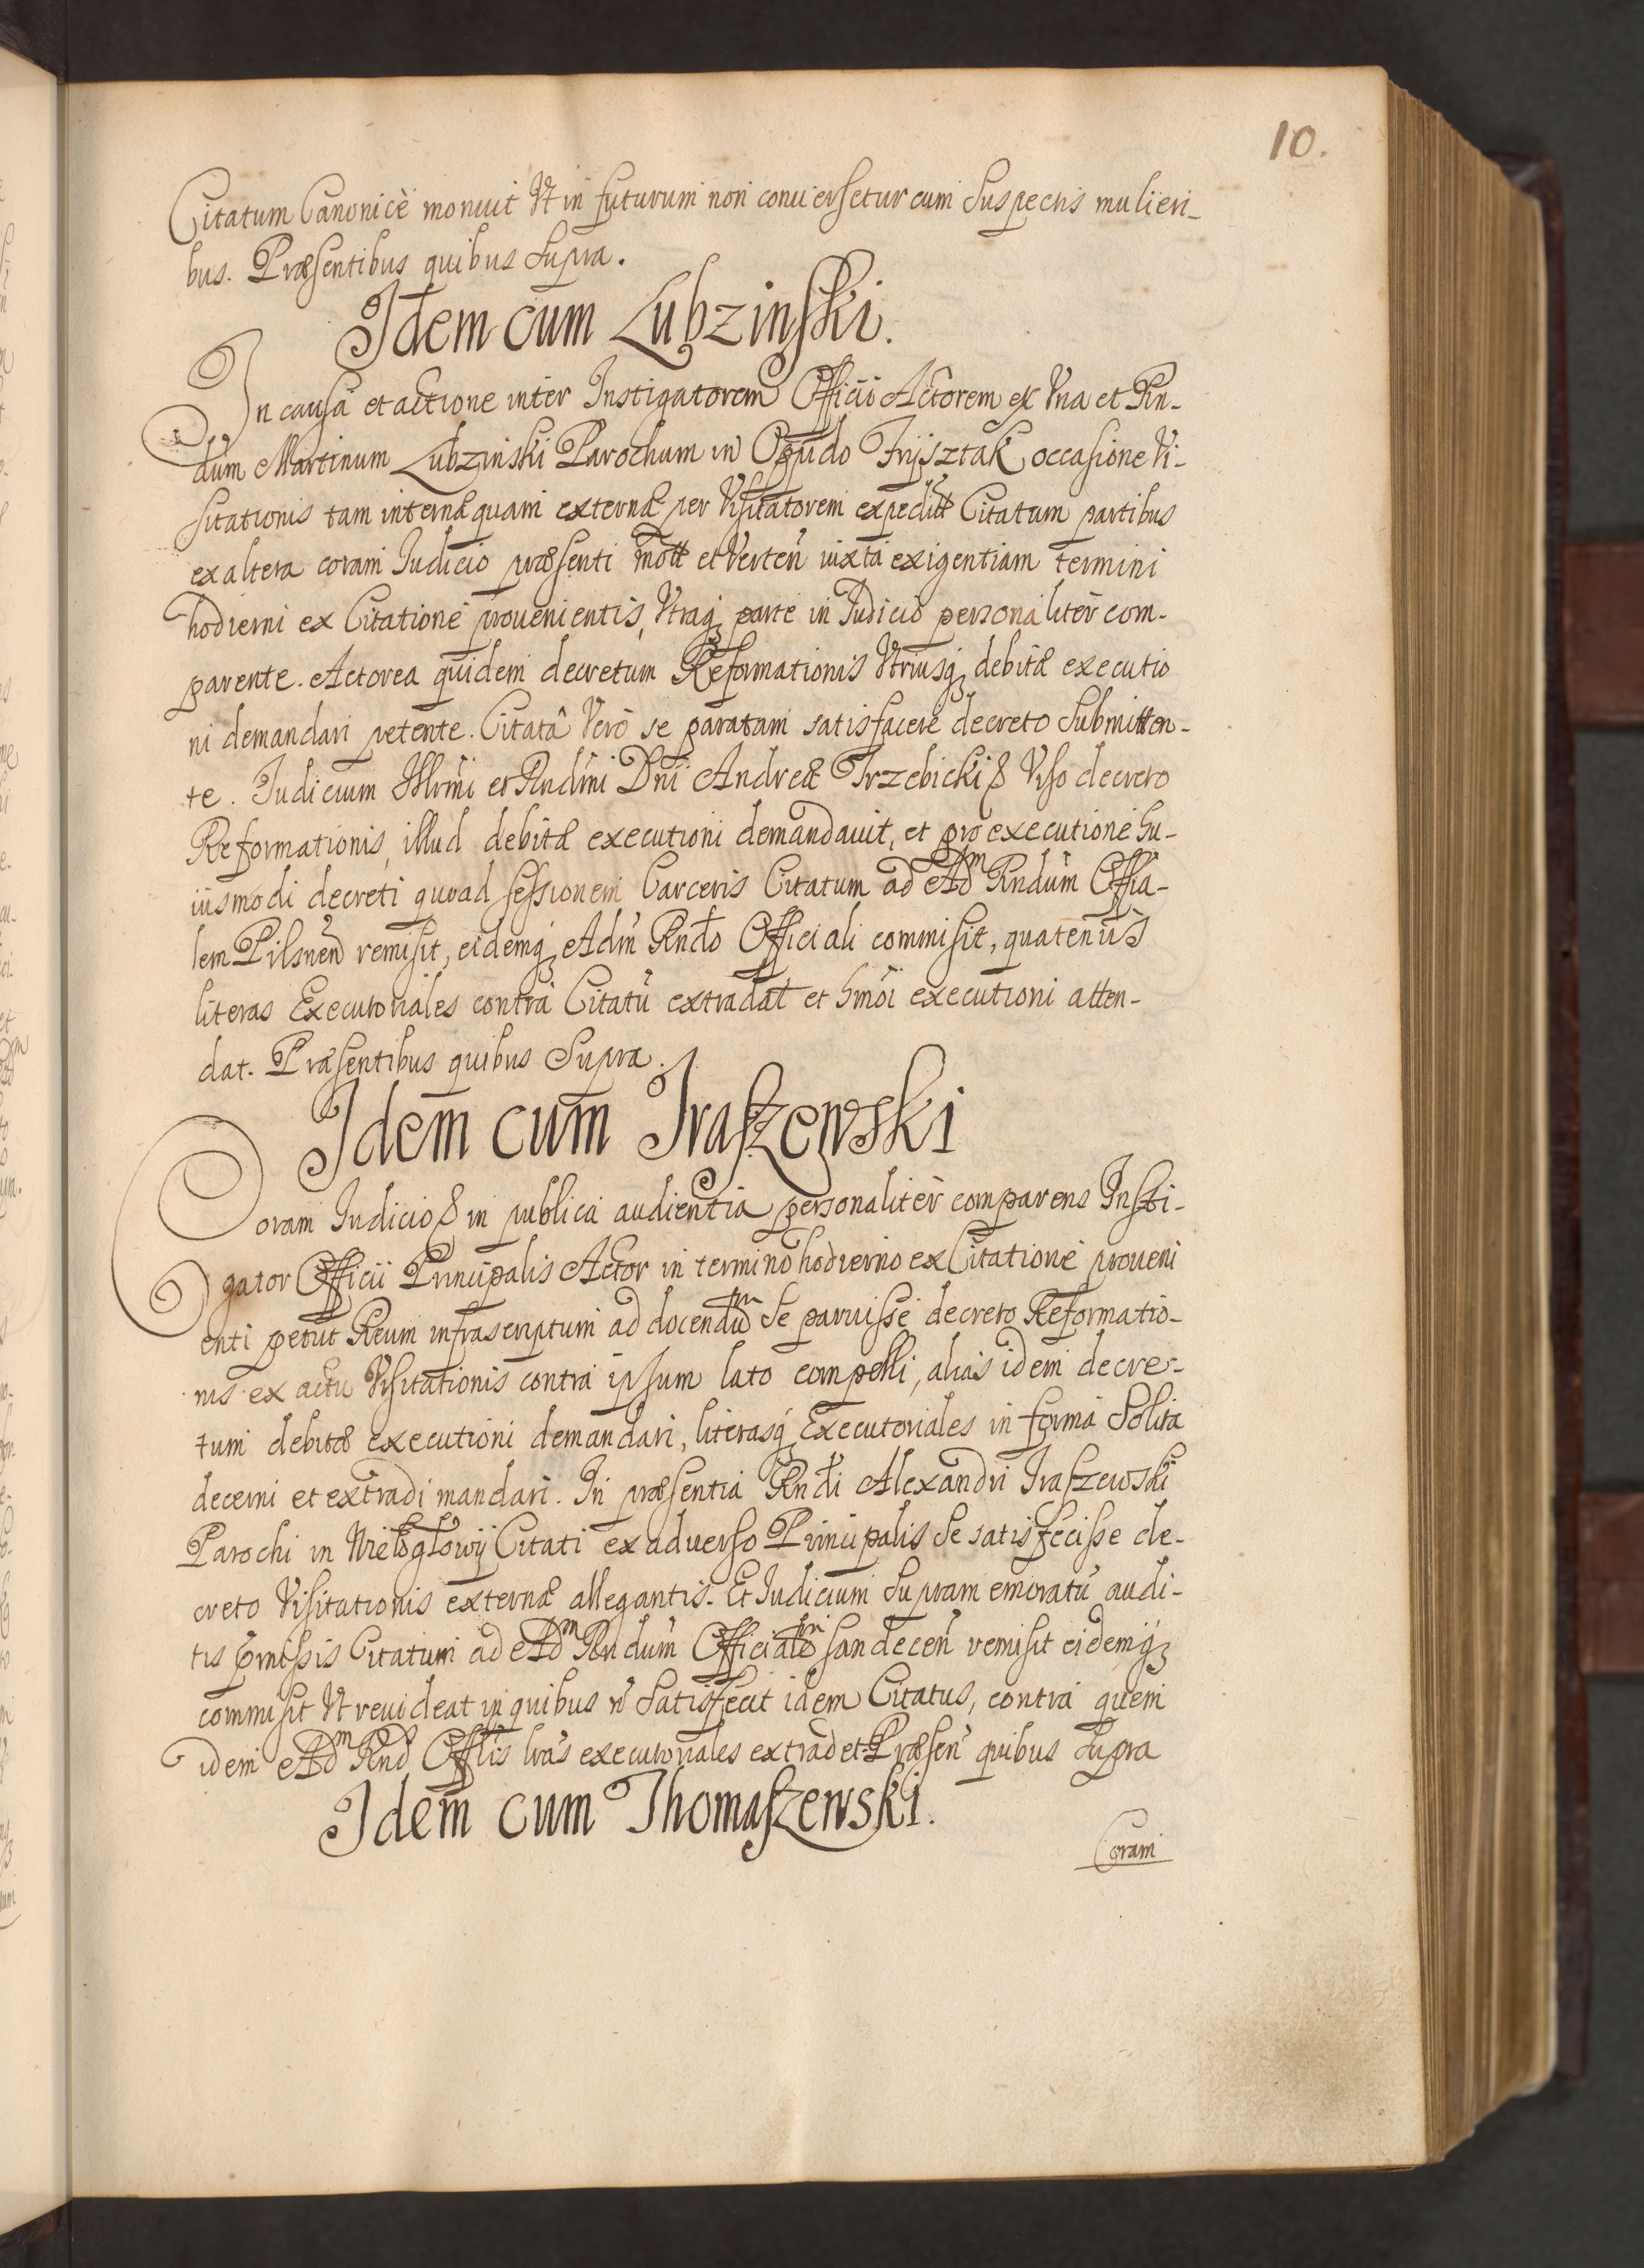 10.
Citatum Canonicè monuit Vt in futurum non conuersetur cum Suspectis mulieri-
bus. Præsentibus quibus Supra.
Idem cum Lubzinski.
In causa et actione inter Instigatorem Officii Actorem ex Vna et Rn-
dum Martinum Lubzinski Parochum in Oppido Frijsztak occasione Vi-
sitationis tam internæ quam externæ per Visitatorem expeditæ Citatum partibus
ex altera coram Iudicio præsenti mott et Verteñ iuxta exigentiam termini
hodierni ex Citatione prouenientis, Vtraq; parte in Iudicio personaliter com-
parente. Actorea quidem decretum Reformationis Vtriusq; debitæ executio
ni demandari petente. Citatâ Verò se paratam satisfacere decreto Submitten-
te. Iudicium Illrmi et Rndmi Dni Andreæ Trzebicki & Viso decreto
Reformationis, illud debitæ executioni demandauit, et pro executione hu-
iusmodi decreti quoad sessionem Carceris Citatum ad Adm Rndum Officia-
lem Pilsneñ remisit, eidemq; Adm Rndo Officiali commisit, quatenus
literas Executoriales contra Citatū extradat et hmoi executioni atten-
dat. Præsentibus quibus Supra.
Idem cum Iraszewski
Coram Iudicio & in publica audientia personaliter comparens Insti-
gator Officii Principalis Actor in termino hodierno ex Citatione proueni
enti petiit Reum infrascriptum ad docendum Se paruisse decreto Reformatio-
nis ex actu Visitationis contra ipsum lato compelli, alias idem decre-
tum debitæ executioni demandari, literasq; Executoriales in forma Solita
decerni et extradi mandari. In præsentia Rndi Alexandri Iraszewski
Parochi in Wielogłowij Citati ex aduerso Principalis Se satisfecisse de-
creto Visitationis externæ allegantis. Et Iudicium Supramemoratū audi-
tis præmissis Citatum ad Adm Rndum Officialem Sandeceñ remisit eidemq;
commisit Vt reuideat in quibus ñ Satisfecit idem Citatus, contra quem
idem Adm Rnd Offlis lras executoriales extradet. Præseñ quibus Supra
Idem cum Thomaszewski.
Coram